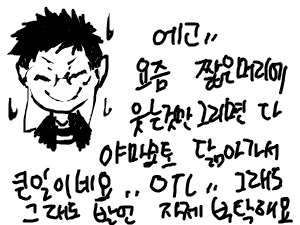 에고,,
요즘 짧은머리에
웃는것만그리면 다
야마모토 닮아가서
큰일이네요,, OTL,, 그래도
그래도 발언 자제 부탁해요